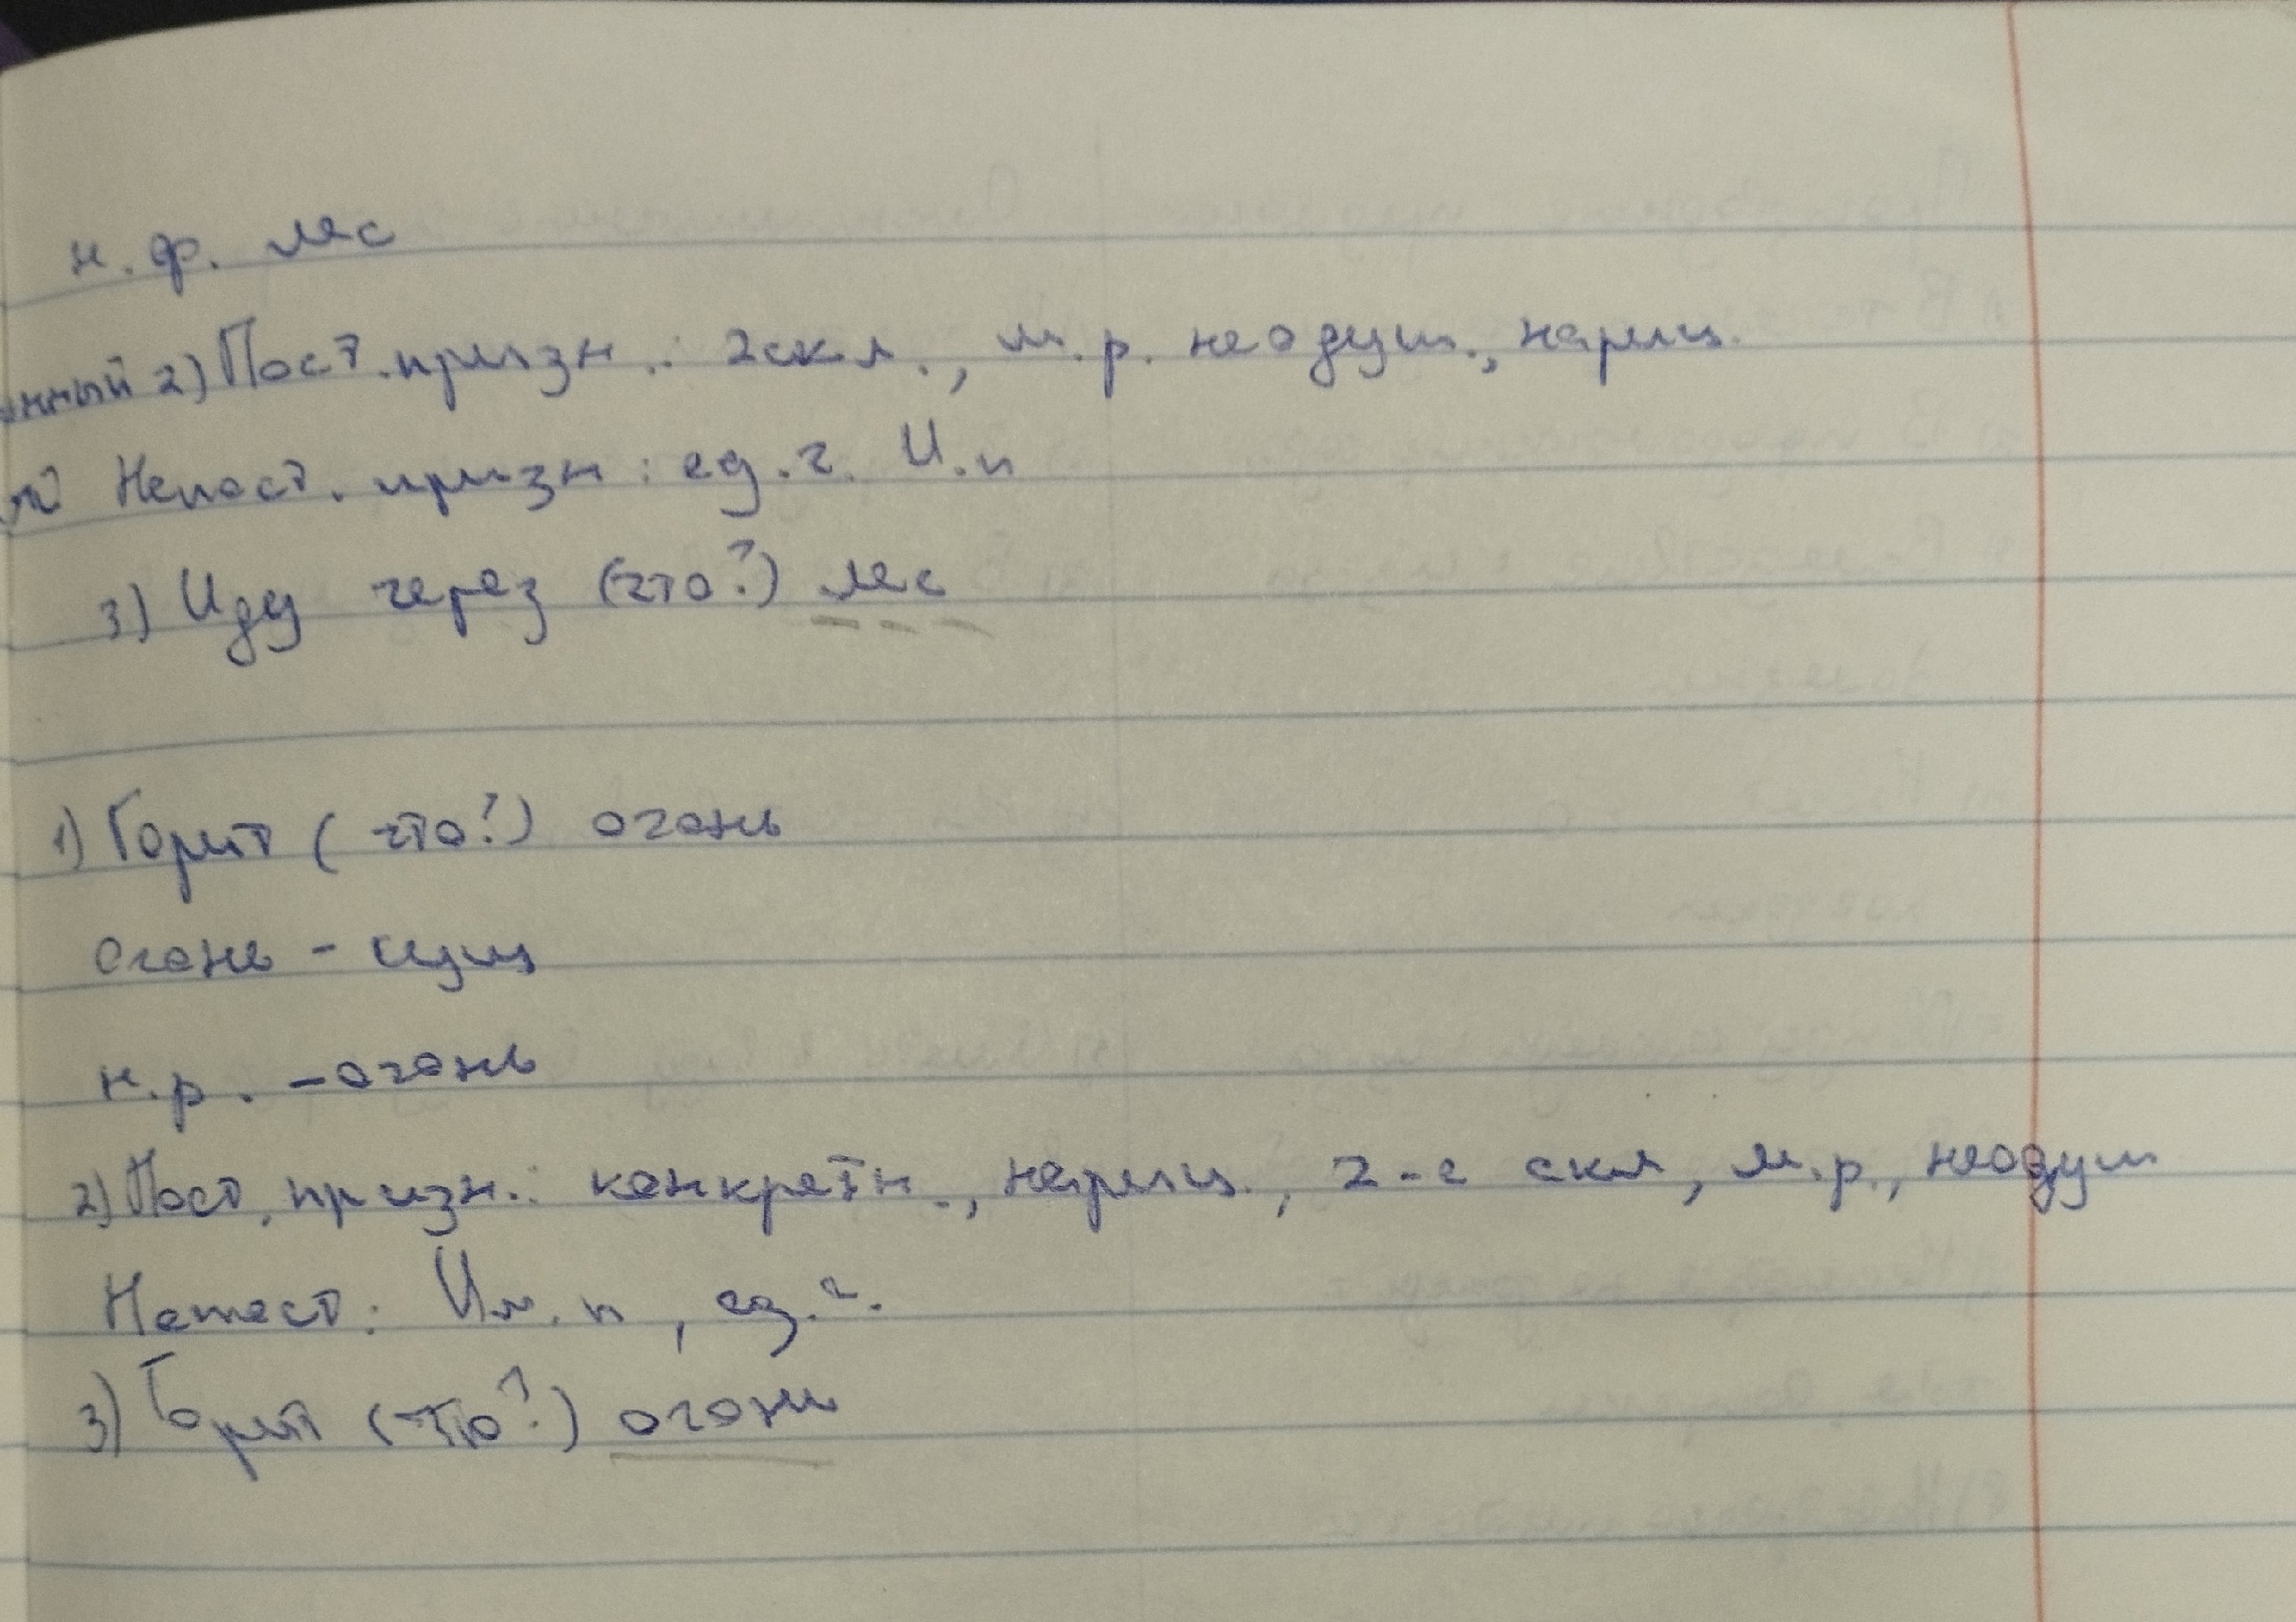 н.ф. лес
нный 2) Пост. призн.: 2скл., м.р. неодуш., нариц.
Непост. призн: ед.ч. И.п
3) Иду через (что?) лес
1) Горит (что?) огонь
огонь - сущ
н.р. - огонь
2) Пост. призн.: конкретн., нариц., 2-е скл, м.р., неодуш
Непост: Им.п, ед.ч.
3) Горит (что?) огонь